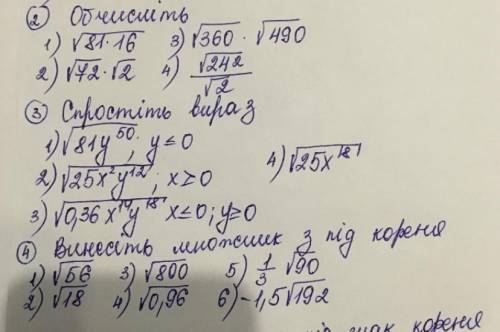 ② Обчисліть
1) √81·16 3) √360 · √490
2) √72·√2 4) √242/√2
③ Спростіть вираз
1) √81y⁵⁰, y ≤ 0
2) √25x²y¹², x ≥ 0 4) √25x¹⁸
3) √0,36x¹⁴y¹⁸ x≤0; y≥0
④ Винесіть множник з під кореня
1) √56 3) √800 5) 1/3 √90
2) √18 4) √0,96 6) -1,5√192
під знак кореня